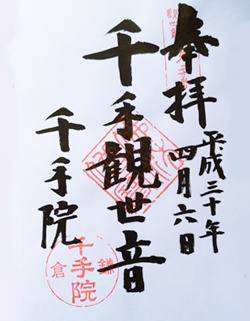 奉拝
平成三十年
四月六日
千手観世音
千手院
鎌倉
千手院